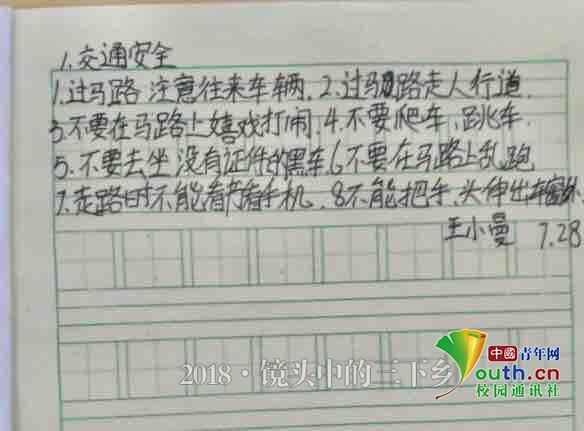 1.交通安全
1.过马路 注意往来车辆.2.过马路走人行道.
3.不要在马路上嬉戏打闹.4.不要爬车、跳车.
5.不要去坐没有证件的黑车.6不要在马路上乱跑
7.走路时不能看书看手机.8不能把手、头伸出车窗外.
王小曼 7.28
中國青年网
youth.cn
校园通讯社
2018·镜头中的三下乡